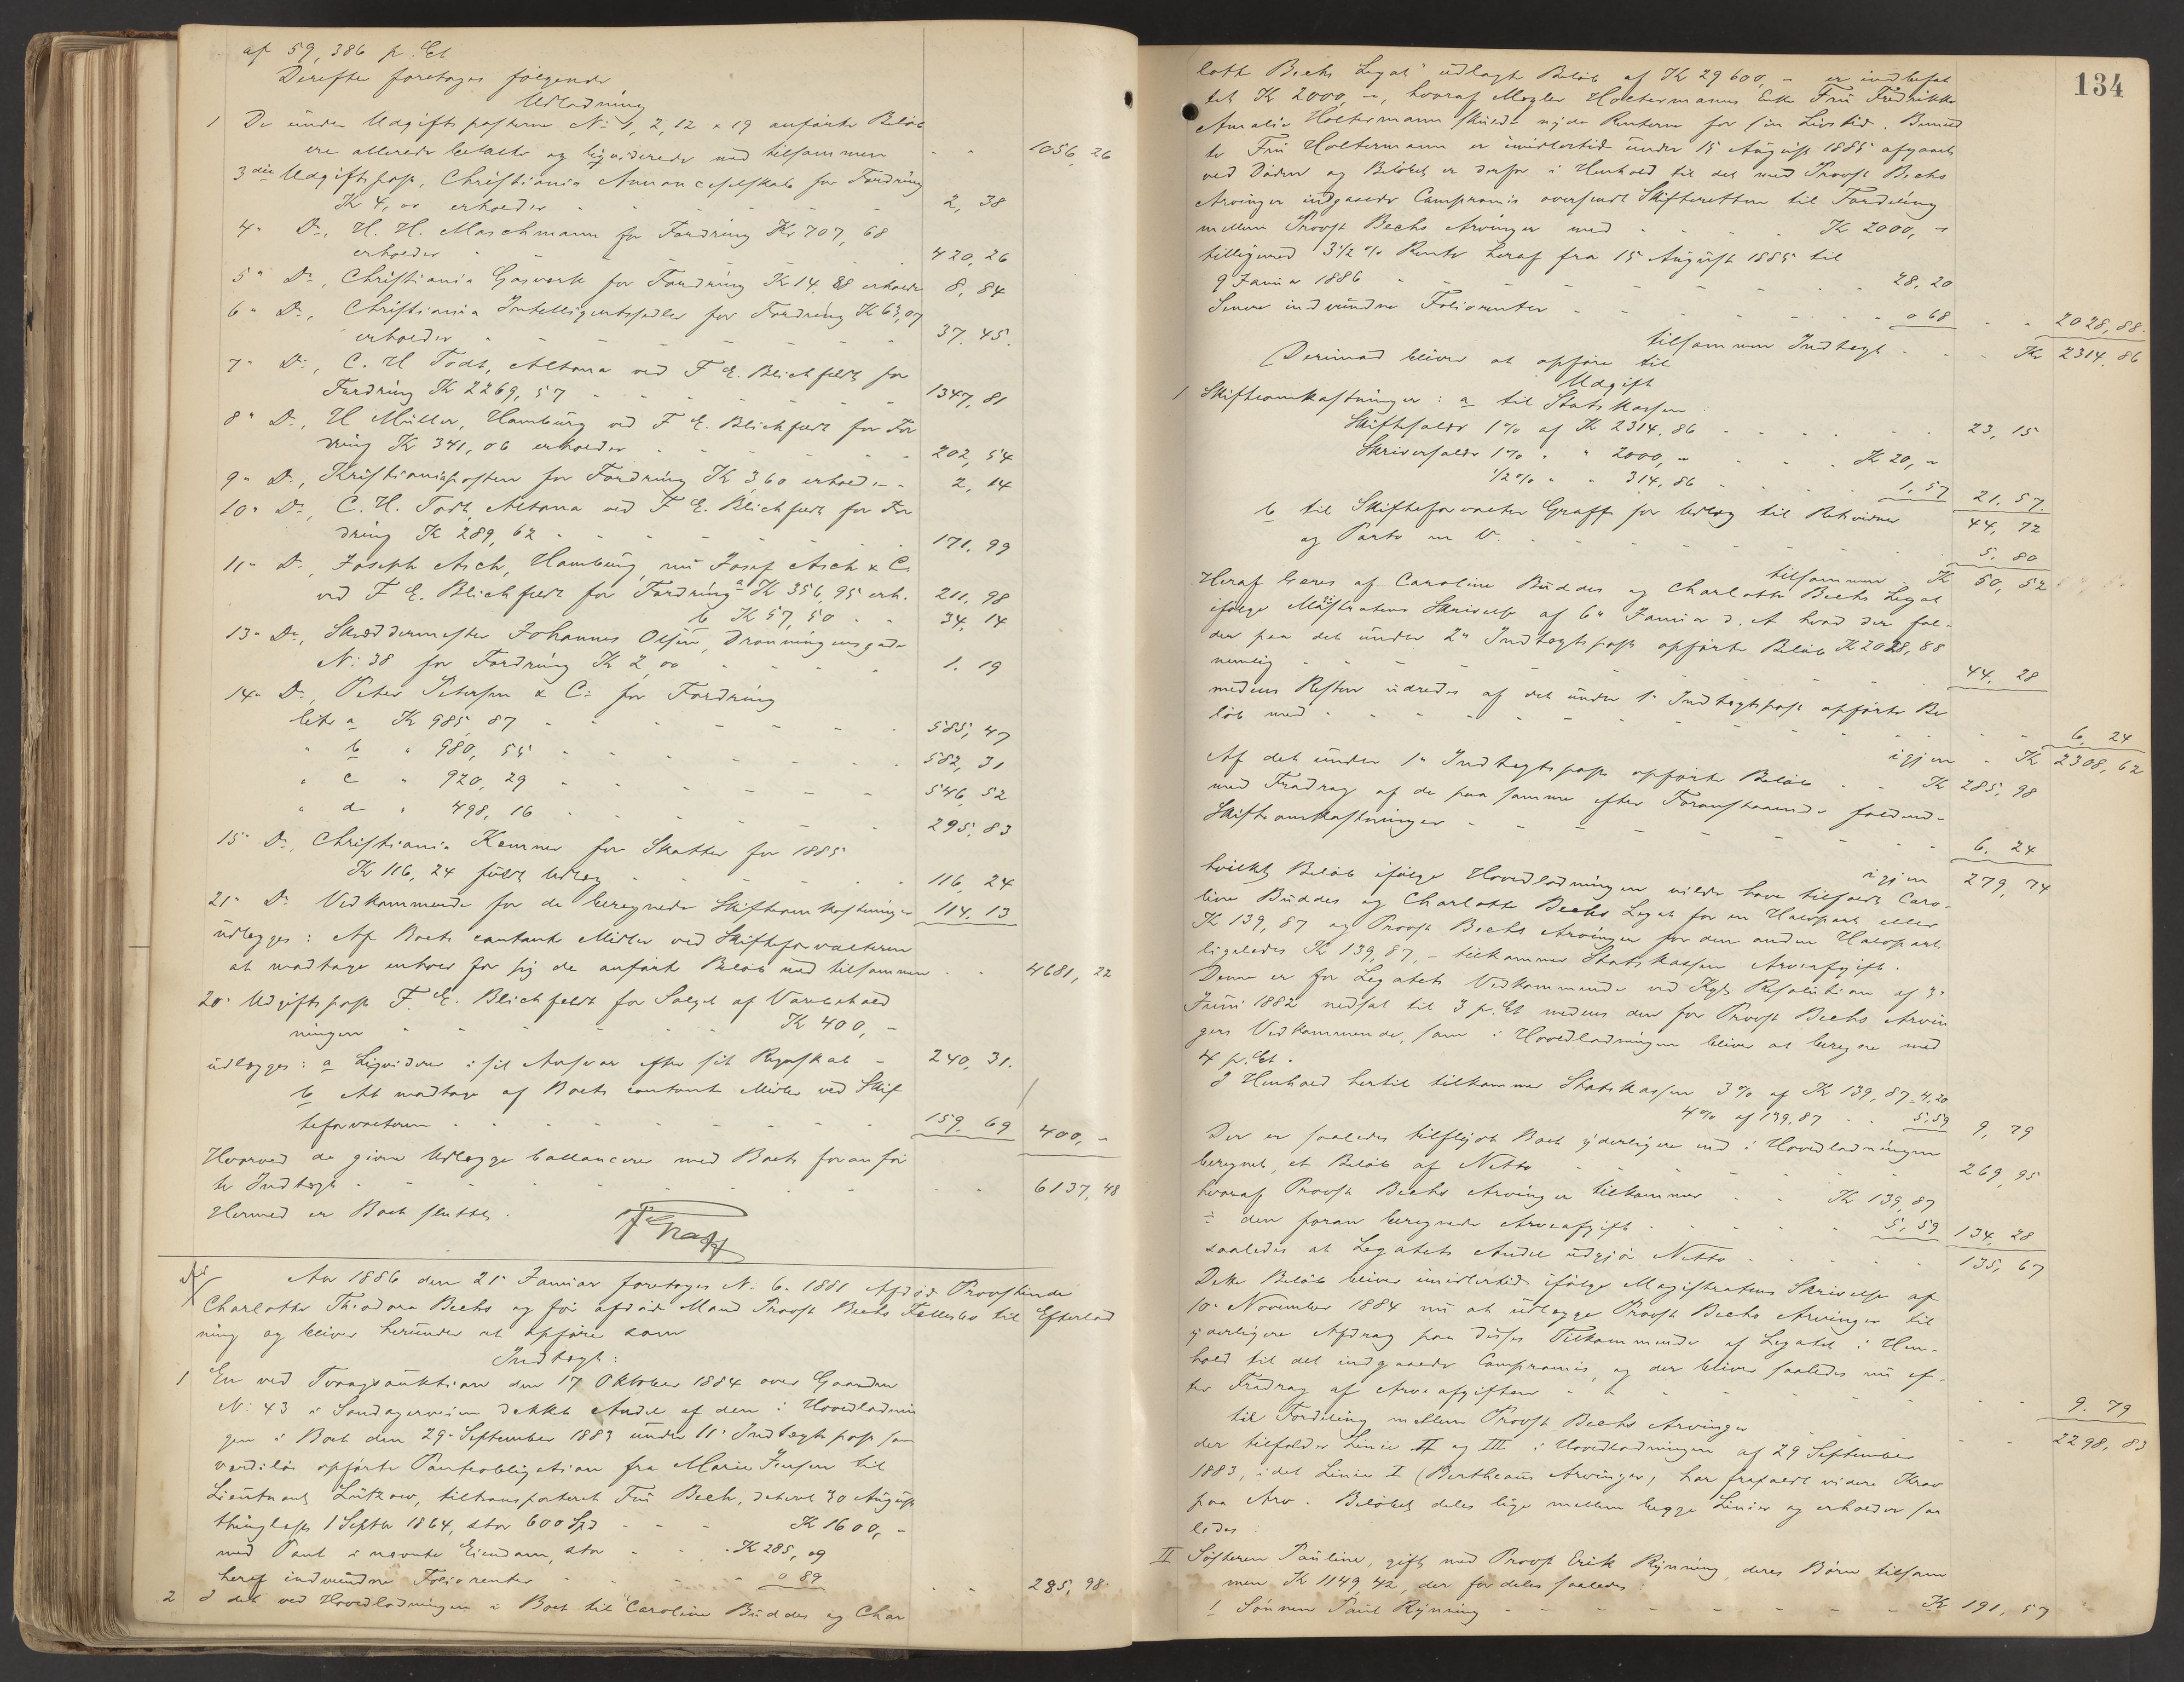 af 59,386 p. Ct
Derefter foretages følgende
Udlodning
1 De under Udgiftsposterne No 1, 2, 12 & 19 anførte Beløb
ere allerede betalte og liqviderede med tilsammen - - 1056,26
3die Udgiftspost, Christiania Annonceselskab for Fordring
Kr 4,00 erholder - - - 2,38
4" Do, H. H. Maschmann for Fordring Kr 707,68
erholder - - - 420,26
5" Do, Christiania Gasværk for Fordring Kr 14.88 erholder 8,84
6" Do, Christiania Intelligentssedler for Fordring Kr 63,07
erholder - - - 37.45.
7" Do, C. H. Todt, Altona ved F. E. Blichfeldt for
Fordring Kr 2269,57 - - - 1347,81
8" Do, H Müller, Hamburg ved F. E. Blichfeldt for For
dring Kr 341,06 erholder - - - 202,54
9" Do, Kristianiaposten for Fordring Kr 3 60 erhold. - - 2,14
10" Do, C. H. Todt, Altona ved F. E. Blichfeldt for For
dring Kr 289,62 - - - 171.99
11" Do, Joseph Asch, Hamburg, nu Josef Asch & Co
ved F. E. Blichfeldt for Fordring a Kr 356,95 erh. 211,98
b Kr 57,50 - - 34,14
13" Do, Skræddermester Johannes Olsen, Dronningensgade
No 38 for Fordring Kr 2,00 - - - 1.19
14" Do, Peter Petersen & Co for Fordring
litr a Kr 985,87 - - - 585,47
" b " 980,55 - - - 582,31
" c " 920,29 - - - 546,52
" d " 498,16 - - - 295.83
15" Do, Christiania Kemner for Skatter for 1885
Kr 116,24 fuldt Udlæg - - - 116,24
21" Do Vedkommende for de beregnede Skifteomkostninger 114.13
udlægges: Af Boets contante Midler ved Skifteforvalteren
at modtage enhver for sig de anførte Beløb med tilsammen - - 4681,22
20" Udgiftspost F. E. Blichfeldt for Salget af Varebehold
ningen - - - Kr 400,-
udlægges: a Liqvidere i sit Ansvar efter sit Regnskab - 240,31.
b At modtage af Boets contante Midler ved Skif
teforvalteren - - - 159.69 400,-
Hvorved de givne Udlægge ballancere med Boets foranfør
te Indtægt - - - 6137,48
Hermed er Boet sluttet.
Graff
Aar 1886 den 21" Januar foretoges No 6. 1881 Afdøde Provstinde
Charlotte Theodora Bechs og før afdøde Mand Provst Bechs Fællesbo til Efterlod
ning og bliver herunder at opføre som
Indtægt:
1 En ved Tvangsauktion den 17 Oktober 1884 over Gaarden
No 43 i Sandagerveien dækket Andel af den i Hovedlodnin
gen i Boet den 29" September 1883 under 11" Indtægtspost som
værdiløs opførte Panteobligation fra Marie Jensen til
Lieutnant Lützow, tiltransporteret Fru Bech, dateret 30 August
thinglæst 1 Septbr 1864, stor 600 Spd - - - Kr 1600,-
med Pant i nævnte Eiendom, stor - - - Kr 285,09
heraf indvundne Foliorenter - - - 0 89 - - 285,98
2 I det ved Hovedlodningen i Boet til "Caroline Buddes og Char
134
lotte Bechs Legat" udlagte Beløb af Kr 29600,- er indbefat
tet Kr 2000,-, hvoraf Mægler Holtermanns Enke Fru Fredrikke
Amalie Holtermann skulde nyde Renterne for sin Livstid. Benævn
te Fru Holtermann er imidlertid under 15 August 1885 afgaaet
ved Døden og Beløbet er derfor i Henhold til det med Provst Bechs
Arvinger indgaaede Compromis oversendt Skifteretten til Fordeling
mellem Provst Bechs Arvinger med - - - Kr 2000,-
tilligemed 3 1/2 % Rente heraf fra 15 August 1885 til
9 Januar 1886 - - - 28,20
Senere indvundne Foliorenter - - - 0 68 - - 2028,88.
tilsammen Indtægt - - - Kr 2314.86
Derimod bliver at opføre til
Udgift
1 Skifteomkostninger: a til Statskassen:
Skiftesalær 1 % af Kr 2314.86 - - - 23,15
Skriversalær 1 % " " 2000,- - - Kr 20,-
1/2 % " " 314.86 - - - 1.57 21.57.
44,72
b til Skifteforvalter Graff for Udlæg til Retsvidner
og Porto m. V. - - - 5,80
tilsammen Kr 50,52
Heraf bæres af Caroline Buddes og Charlotte Bechs Legat
ifølge Magistratens Skrivelse af 6" Januar d. A hvad der fal-
der paa det under 2" Indtægtspost opførte Beløb Kr 2028,88
nemlig - - - 44.28
medens Resten udredes af det under 1" Indtægtspost opførte Be
løb med - - - 6.24
igjen - Kr 2308,62
Af det under 1" Indtægtspost opførte Beløb - - Kr 285,98
med Fradrag af de paa samme efter Foranstaaende faldende
Skifteomkostninger - - - 6.24
igjen 279,74
hvilket Beløb ifølge Hovedlodningen vilde have tilfaldt Caro-
line Buddes og Charlotte Bechs Legat for en Halvpart eller
Kr 139,87 og Provst Bechs Arvinger for den anden Halvpart
ligeledes Kr 139,87, - tilkommer Statskassen Arveafgift.
Denne er for Legatets Vedkommende ved Kgl. Resolution af 3"
Juni 1882 nedsat til 3 p. Ct medens den for Provst Bechs Arvin
gers Vedkommende, som i Hovedlodningen bliver at beregne med
4 p. Ct.
I Henhold hertil tilkommer Statskassen 3 % af Kr 139,87 - 4,20
4 % af 139,87 - - 5,59 9,79
Der er saaledes tilflydt Boet yderligere end i Hovedlodningen
beregnet, et Beløb af Netto - - - 269,95
hvoraf Provst Bechs Arvinger tilkommer - - Kr 139,87
÷ den foran beregnede Arveafgift - - - 5,59 134,28
saaledes at Legatets Andel udgjør Netto - - - 135,67
Dette Beløb bliver imidlertid ifølge Magistratens Skrivelse af
10" November 1884 nu at udlægge Provst Bechs Arvinger til
yderligere Afdrag paa disses Tilkommende af Legatet i Hen-
hold til det indgaaede Compromis, og der bliver saaledes nu ef-
ter Fradrag af Arveafgiften - - - 9.79
til Fordeling mellem Provst Bechs Arvinger - - - 2298,83
der tilfalder Linie II og III i Hovedlodningen af 29 September
1883, idet Linie I (Bertheaus Arvinger) har frafaldt videre Krav
paa Arv. Beløbet deles lige mellem begge Linier og erholder saa
ledes:
II Søsteren Pauline, gift med Provst Erik Rynning, deres Børn tilsam
men Kr 1149,42, der fordeles saaledes:
1 Sønnen Paul Rynning - - - Kr 191,57